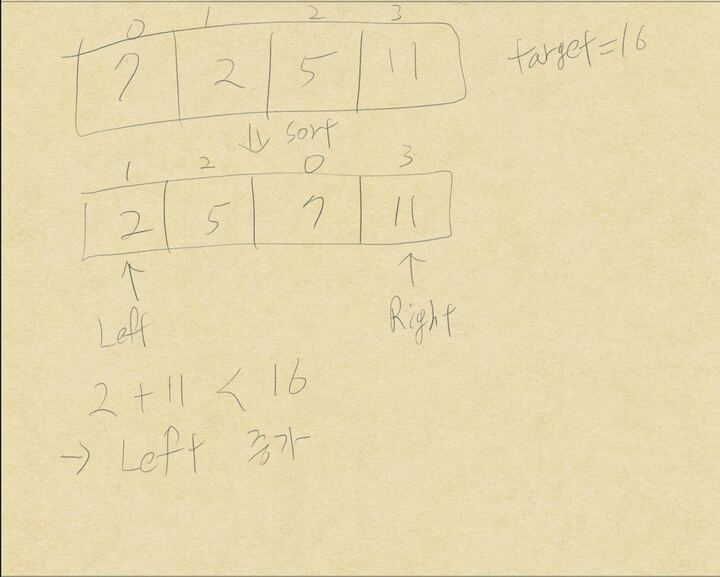 0 1 2 3
7 2 5 11 target=16
sort
1 2 0 3
2 5 7 11
Left Right
2 + 11 < 16
→ Left 증가